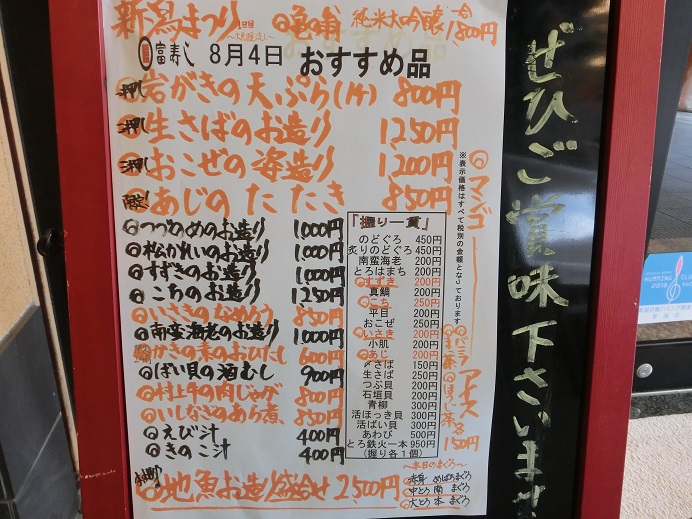 新潟まつり
◎亀の翁 純米大吟醸 一合 1,800円
富寿し 8月4日 おすすめ品
押し ◎岩がきの天ぷら(1ケ) 800円
押し ◎生さばのお造り 1,250円
押し ◎おこぜの姿造り 1,200円
限定! ◎あじのたたき 850円
◎つづのめのお造り 1,000円
◎松かれいのお造り 1,000円
◎すずきのお造り 1,000円
◎こちのお造り 1,250円
◎いさきのなめろう 850円
◎南蛮海老のお造り 1,000円
◎かきの素のおひたし 600円
◎ばい貝の酒むし 900円
◎村上牛の肉じゃが 800円
◎いしなぎのあら煮 850円
◎えび汁 400円
◎きのこ汁 400円
◎地魚お造り盛合せ 2,500円
「握り一貫」
のどぐろ 450円
炙りのどぐろ 450円
南蛮海老 200円
とろはまち 200円
◎すずき 200円
真鯛 200円
◎こち 250円
平目 200円
おこぜ 250円
◎いさき 200円
小肌 200円
◎あじ 200円
〆さば 150円
生さば 250円
つぶ貝 200円
石垣貝 200円
青柳 300円
活ほっき貝 300円
活ばい貝 300円
あわび 500円
とろ鉄火一本 950円
(握り各1個)
※表示価格はすべて税別の金額となっております
◎マンゴー
◎バニラ
◎ほうじ茶
アイス
各150円
〜本日のまぐろ〜
◎赤身 めばちまぐろ
◎中とろ 南まぐろ
◎大とろ 本まぐろ
ぜひご賞味下さいませ
2018